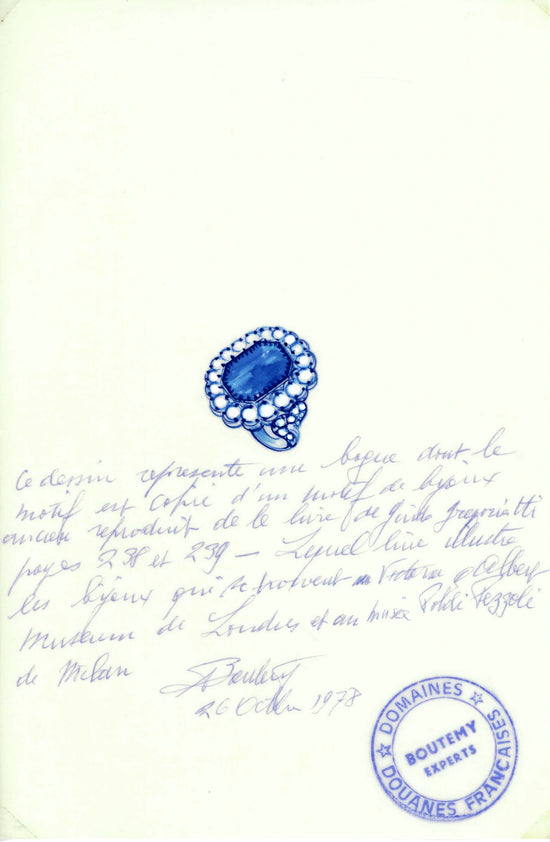 Ce dessin represente une bague dont le
motif est copié d'un motif de bijoux
ancien reproduit de le livre de Guido Gregorietti
pages 238 et 239 — Lequel livre illustre
les bijoux qui se trouvent au Victoria & Albert
Museum de Londres et au musée Poldi Pezzoli
de Milan
26 1978
DOMAINES
BOUTEMY
EXPERTS
DOUANES FRANÇAISES